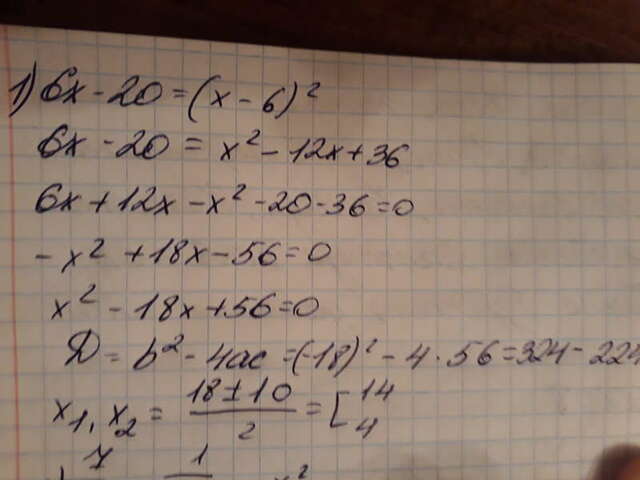 1) 6x - 20 = (x - 6)²
6x - 20 = x² - 12x + 36
6x + 12x - x² - 20 - 36 = 0
- x² + 18x - 56 = 0
x² - 18x + 56 = 0
D = b² - 4ac = (-18)² - 4 · 56 = 324 - 224
x₁, x₂ = (18 ± 10)/2 = [ 14
4